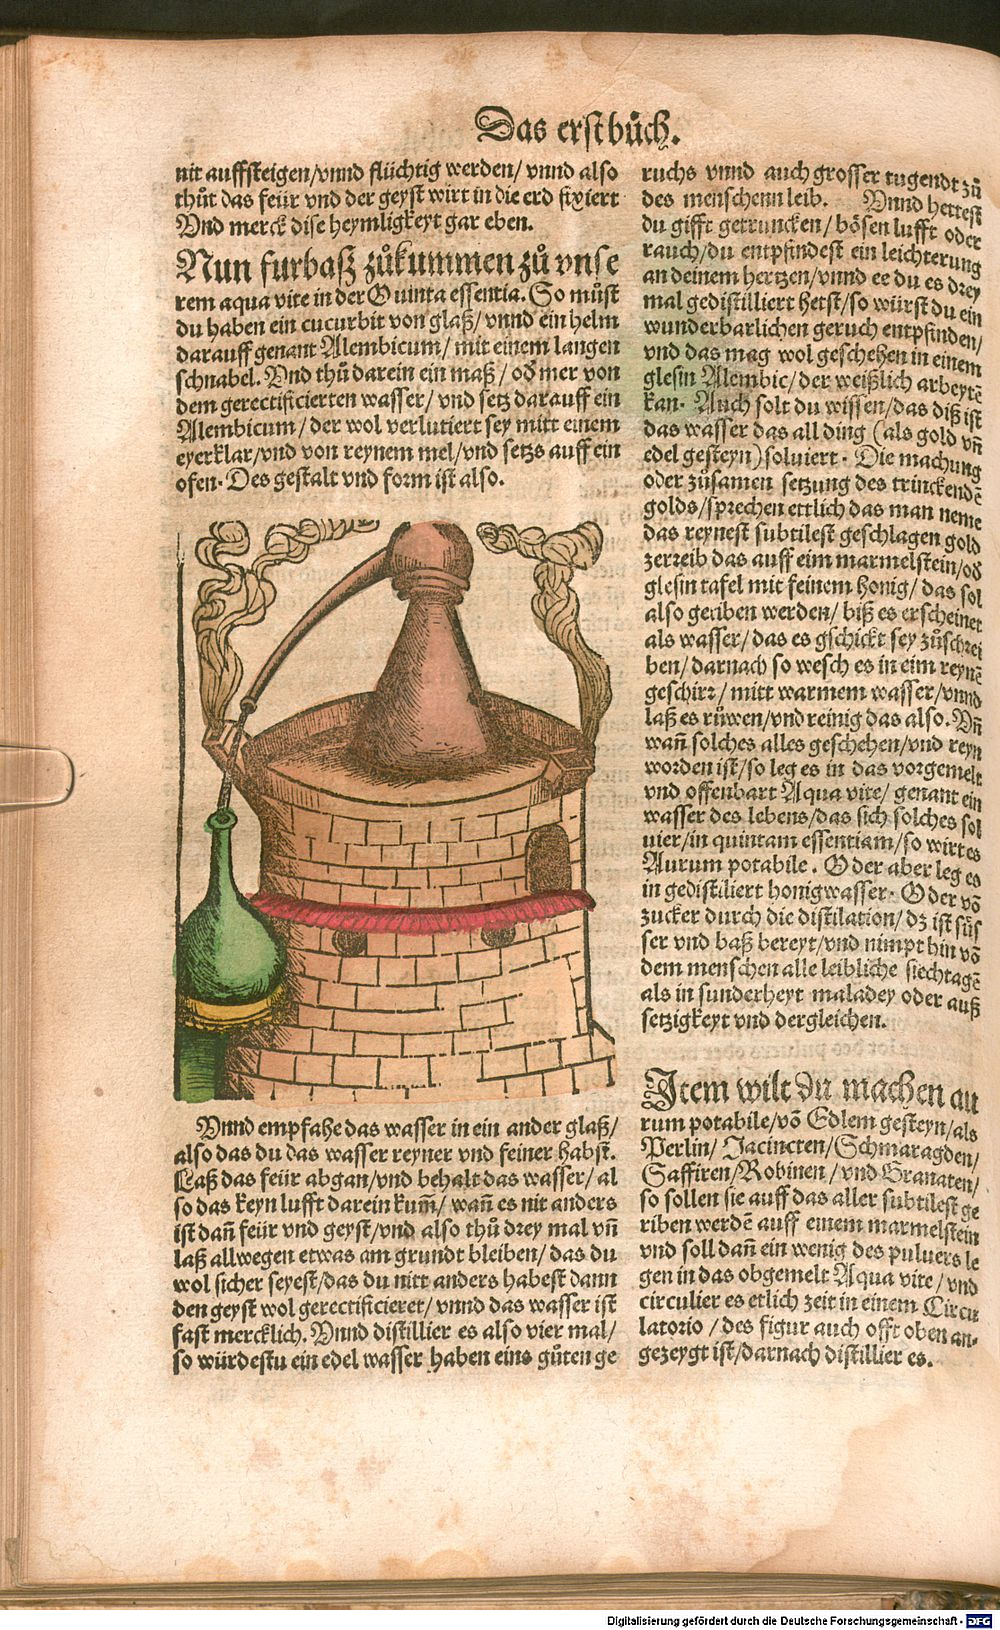 Das erst bůch.
nit auffsteigen/vnnd flüchtig werden/ vnnd also
thůt das feür vnd der geyst wirt in die erd fixiert
Vnd merck dise heymligkeyt gar eben.
Nun furbasz zůkummen zů vnse
rem aqua vite in der Quinta essentia. So můst
du haben ein cucurbit von glaß/ vnnd ein helm
darauff genant Alembicum/ mit einem langen
schnabel. Vnd thů darein ein maß/ oď mer von
dem gerectificierten wasser/ vnd setz darauff ein
Alembicum/ der wol verlutiert sey mitt einem
eyerklar/vnd von reynem mel/vnd setzs auff ein
ofen. Des gestalt vnd form ist also.
Vnnd empfahe das wasser in ein ander glaß/
also das du das wasser reyner vnd feiner habst.
Laß das feür abgan/vnd behalt das wasser/ al
so das keyn lufft darein kum̄/ wan̄ es nit anders
ist dan̄ feür vnd geyst/vnd also thů drey mal vn̄
laß allwegen etwas am grundt bleiben/ das du
wol sicher seyest/das du nitt anders habest dann
den geyst wol gerectificieret/ vnnd das wasser ist
fast mercklich. Vnnd distillier es also vier mal/
so würdestu ein edel wasser haben eins gůten ge
ruchs vnnd auch grosser tugendt zů
des menschenn leib. Vnnd hettest
du gifft getruncken/ bösen lufft oder
rauch/du entpfindest ein leichterung
an deinem hertzen/vnnd ee du es drey
mal gedistilliert hetst/so würst du ein
wunderbarlichen geruch entpfinden/
vnd das mag wol geschehen in einem
glesin Alembic/der weißlich arbeytē
kan. Auch solt du wissen/das diß ist
das wasser das all ding (als gold vn̄
edel gesteyn) soluiert. Die machung
oder zůsamen setzung des trinckendē
golds/sprechen ettlich das man neme
das reynest subtilest geschlagen gold
zerreib das auff eim marmelstein/oď
glesin tafel mit feinem honig/ das sol
also geriben werden/ biß es erscheinet
als wasser/das es gschickt sey zůschrei
ben/ darnach so wesch es in eim reynē
geschirr/ mitt warmem wasser/vnnd
laß es růwen/vnd reinig das also. Vn̄
wan̄ solches alles geschehen/vnd reyn
worden ist/so leg es in das vorgemelt
vnd offenbart Aqua vite/ genant ein
wasser des lebens/das sich solches sol
uier/in quintam essentiam/so wirt es
Aurum potabile. Oder aber leg es
in gedistiliert honigwasser. Oder vō
zucker durch die distilation/ dz ist süs
ser vnd baß bereyt/vnd nimpt hin vō
dem menschen alle leibliche siechtagē
als in sunderheyt maladey oder auß
setzigkeyt vnd dergleichen.
Item wilt du machen au
rum potabile/vō Edlem gesteyn/als
Perlin/ Jacincten/Schmaragden/
Saffiren/Robinen/ vnd Granaten/
so sollen sie auff das aller subtilest ge
riben werdē auff einem marmelstein
vnd soll dan̄ ein wenig des puluers le
gen in das obgemelt Aqua vite/ vnd
circulier es etlich zeit in einem Circu
latorio/ des figur auch offt oben an-
gezeygt ist/darnach distillier es.
Digitalisierung gefördert durch die Deutsche Forschungsgemeinschaft - DFG